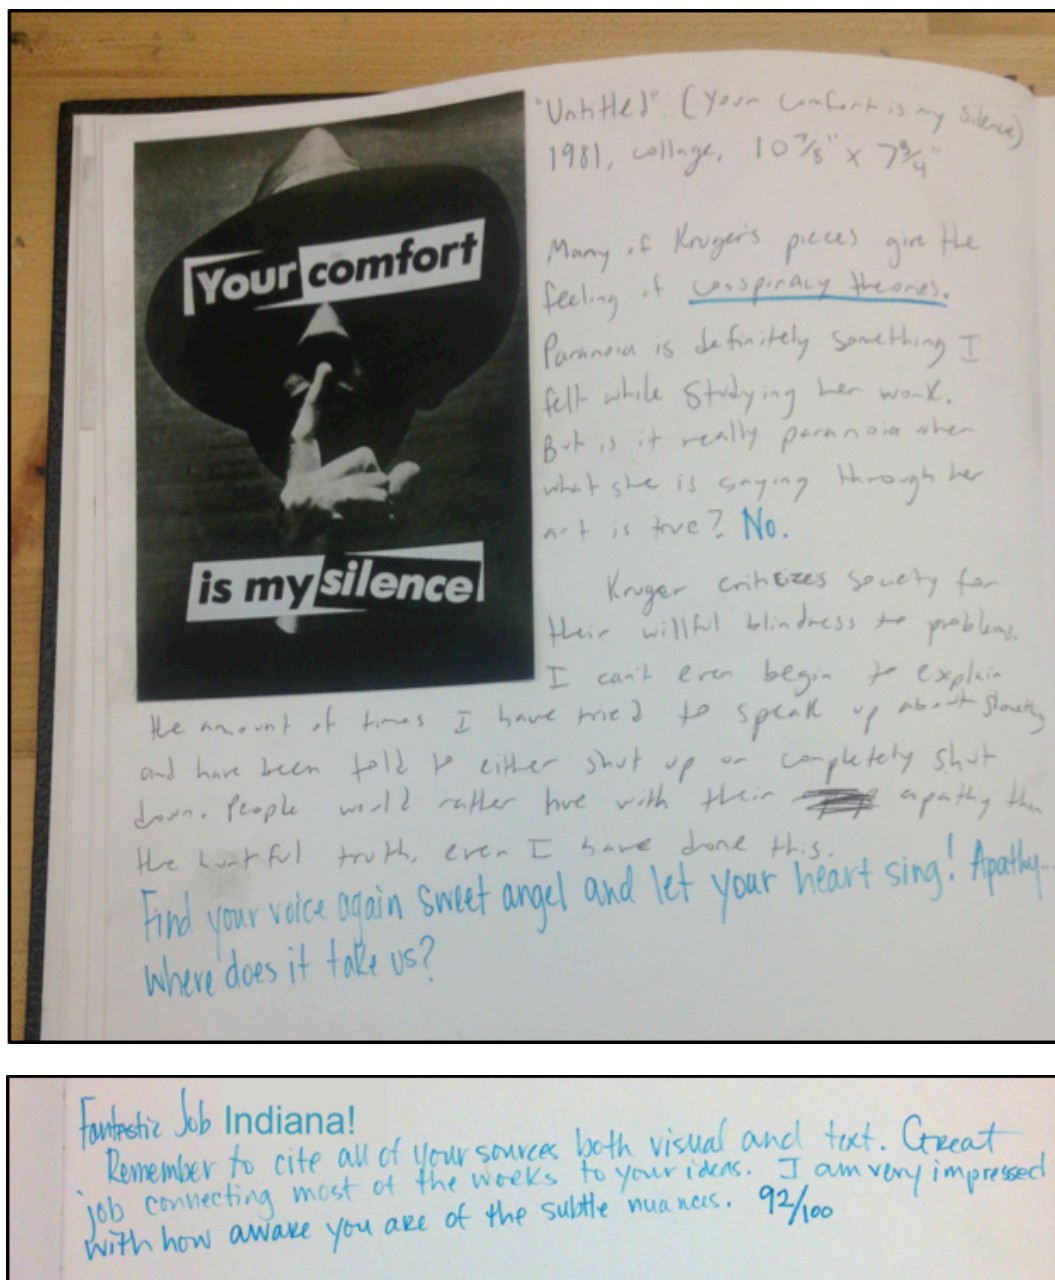 Your comfort
is my silence
"Untitled" (Your comfort is my silence)
1981, collage, 10 7/8" x 7 3/4"
Many of Kruger's pieces give the
feeling of conspiracy theories.
Paranoia is definitely something I
felt while studying her work.
But is it really paranoia when
what she is saying through her
art is true? No.
Kruger criticizes society for
their willful blindness to problems.
I can't even begin to explain
the amount of times I have tried to speak up about
and have been told to either shut up or completely shut
down. People would rather live with their apathy than
the hurtful truth, even I have done this.
Find your voice again sweet angel and let your heart sing! Apathy...
where does it take us?
Fantastic Job Indiana!
Remember to cite all of your sources both visual and text. Great
job connecting most of the works to your ideas. I am very impressed
with how aware you are of the subtle nuances. 92/100